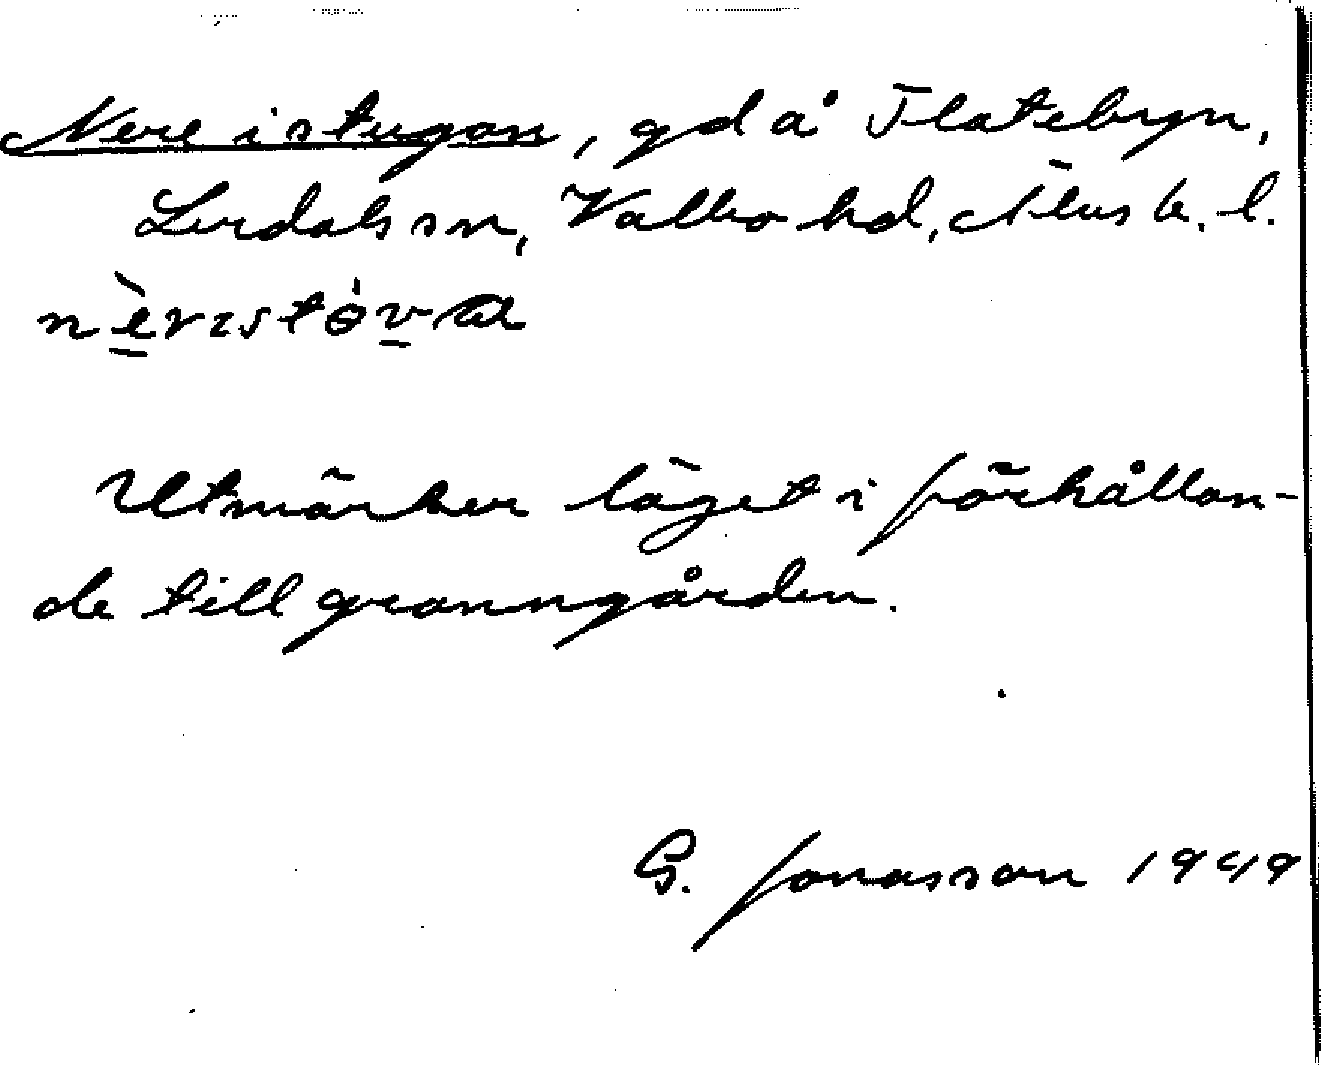 Nere i stugan, gd å Flatebyn,
Lerdals sn, Valbo hd, Älvsb. l.
nèrɪstɵ̀va
Utmärker läget i förhållan-
de till granngården.
G. Jonasson 1949